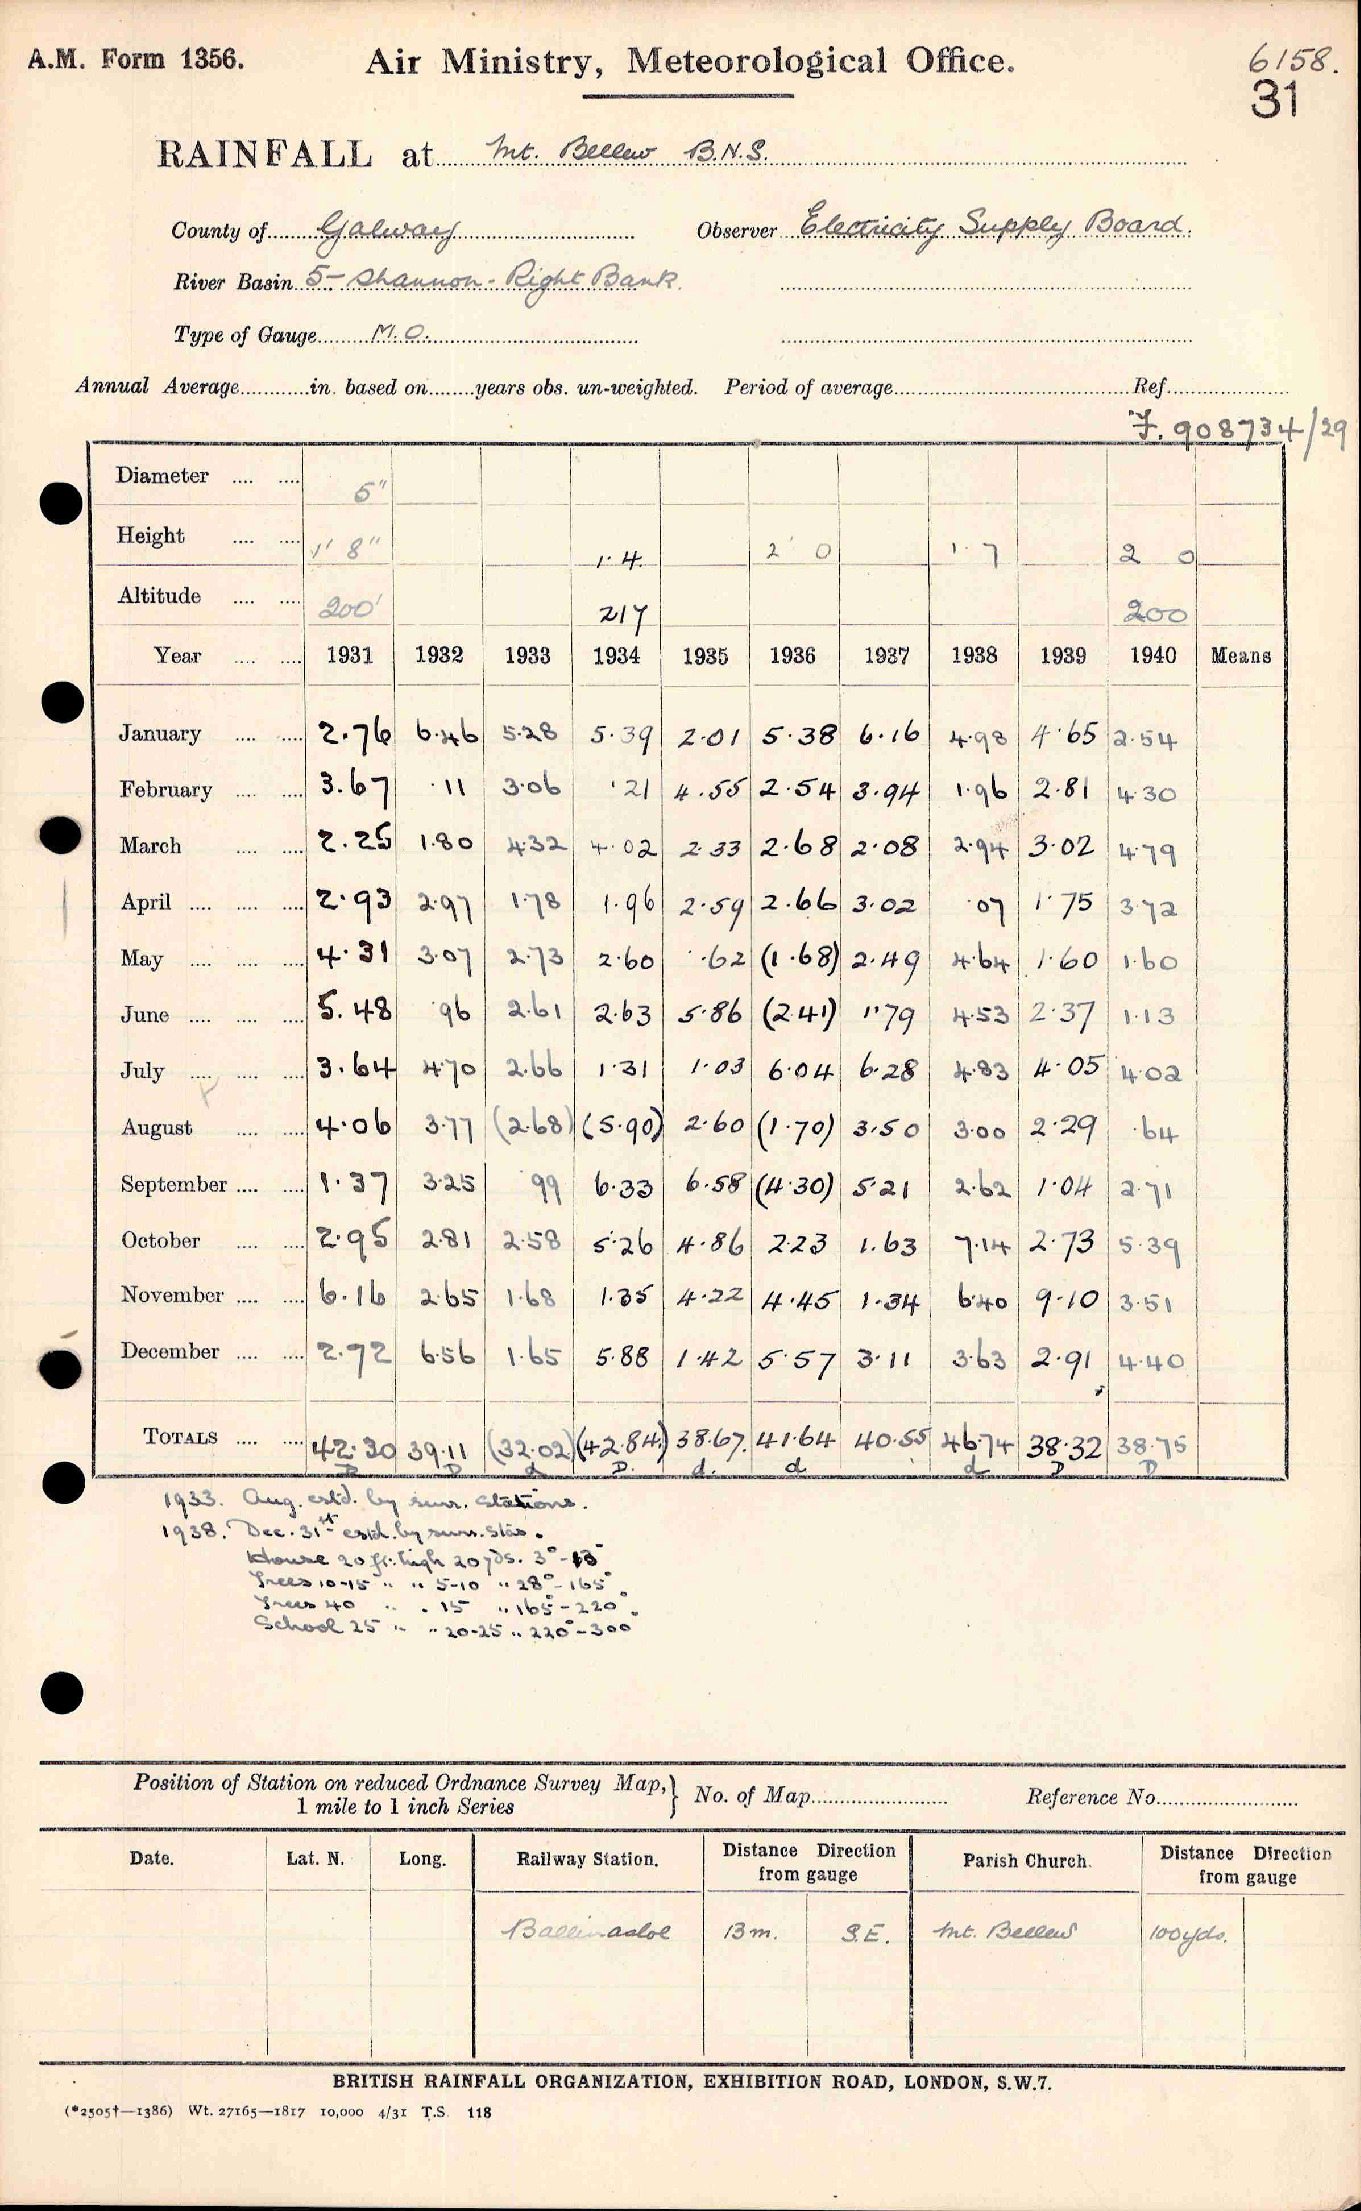 A.M. Form 1356.
Air Ministry, Meteorological Office.
6158.
31
RAINFALL at Mt. Bellew B.N.S.
County of Galway Observer Electricity Supply Board.
River Basin 5 - Shannon - Right Bank.
Type of Gauge M.O.
Annual Average in. based on years obs. un-weighted. Period of average Ref.
F. 908734/29
Diameter 5"
Height 1' 8" 1·4 2' 0 1·7 2 0
Altitude 200' 217 200
Year 1931 1932 1933 1934 1935 1936 1937 1938 1939 1940 Means
January 2.76 6.46 5.28 5.39 2.01 5.38 6.16 4.98 4.65 2.54
February 3.67 .11 3.06 .21 4.55 2.54 3.94 1.96 2.81 4.30
March 2.25 1.80 4.32 4.02 2.33 2.68 2.08 2.94 3.02 4.79
April 2.93 2.97 1.78 1.96 2.59 2.66 3.02 .07 1.75 3.72
May 4.31 3.07 2.73 2.60 .62 (1.68) 2.49 4.64 1.60 1.60
June 5.48 .96 2.61 2.63 5.86 (2.41) 1.79 4.53 2.37 1.13
July 3.64 4.70 2.66 1.31 1.03 6.04 6.28 4.83 4.05 4.02
August 4.06 3.77 (2.68) (5.90) 2.60 (1.70) 3.50 3.00 2.29 .64
September 1.37 3.25 .99 6.33 6.58 (4.30) 5.21 2.62 1.04 2.71
October 2.95 2.81 2.58 5.26 4.86 2.23 1.63 7.14 2.73 5.39
November 6.16 2.65 1.68 1.35 4.22 4.45 1.34 6.40 9.10 3.51
December 2.72 6.56 1.65 5.88 1.42 5.57 3.11 3.63 2.91 4.40
TOTALS 42.30 39.11 (32.02) (42.84) 38.67 41.64 40.55 46.74 38.32 38.75
D D d D. d. d d D D
1933. Aug. estd. by surr. stations.
1938. Dec. 31st estd. by surr. stns.
House 20 ft. high 20 yds. 3° - 13°
Trees 10-15 " " 5-10 " 28° - 165°
Trees 40 " " 15 " 165° - 220°
School 25 " " 20-25 " 220° - 300°
Position of Station on reduced Ordnance Survey Map, 1 mile to 1 inch Series } No. of Map Reference No.
Date. Lat. N. Long. Railway Station. Distance Direction from gauge Parish Church. Distance Direction from gauge
Ballinasloe 13 m. S.E. Mt. Bellew 100 yds.
BRITISH RAINFALL ORGANIZATION, EXHIBITION ROAD, LONDON, S.W.7.
(*2505†—1386) Wt. 27165—1817 10,000 4/31 T.S. 118